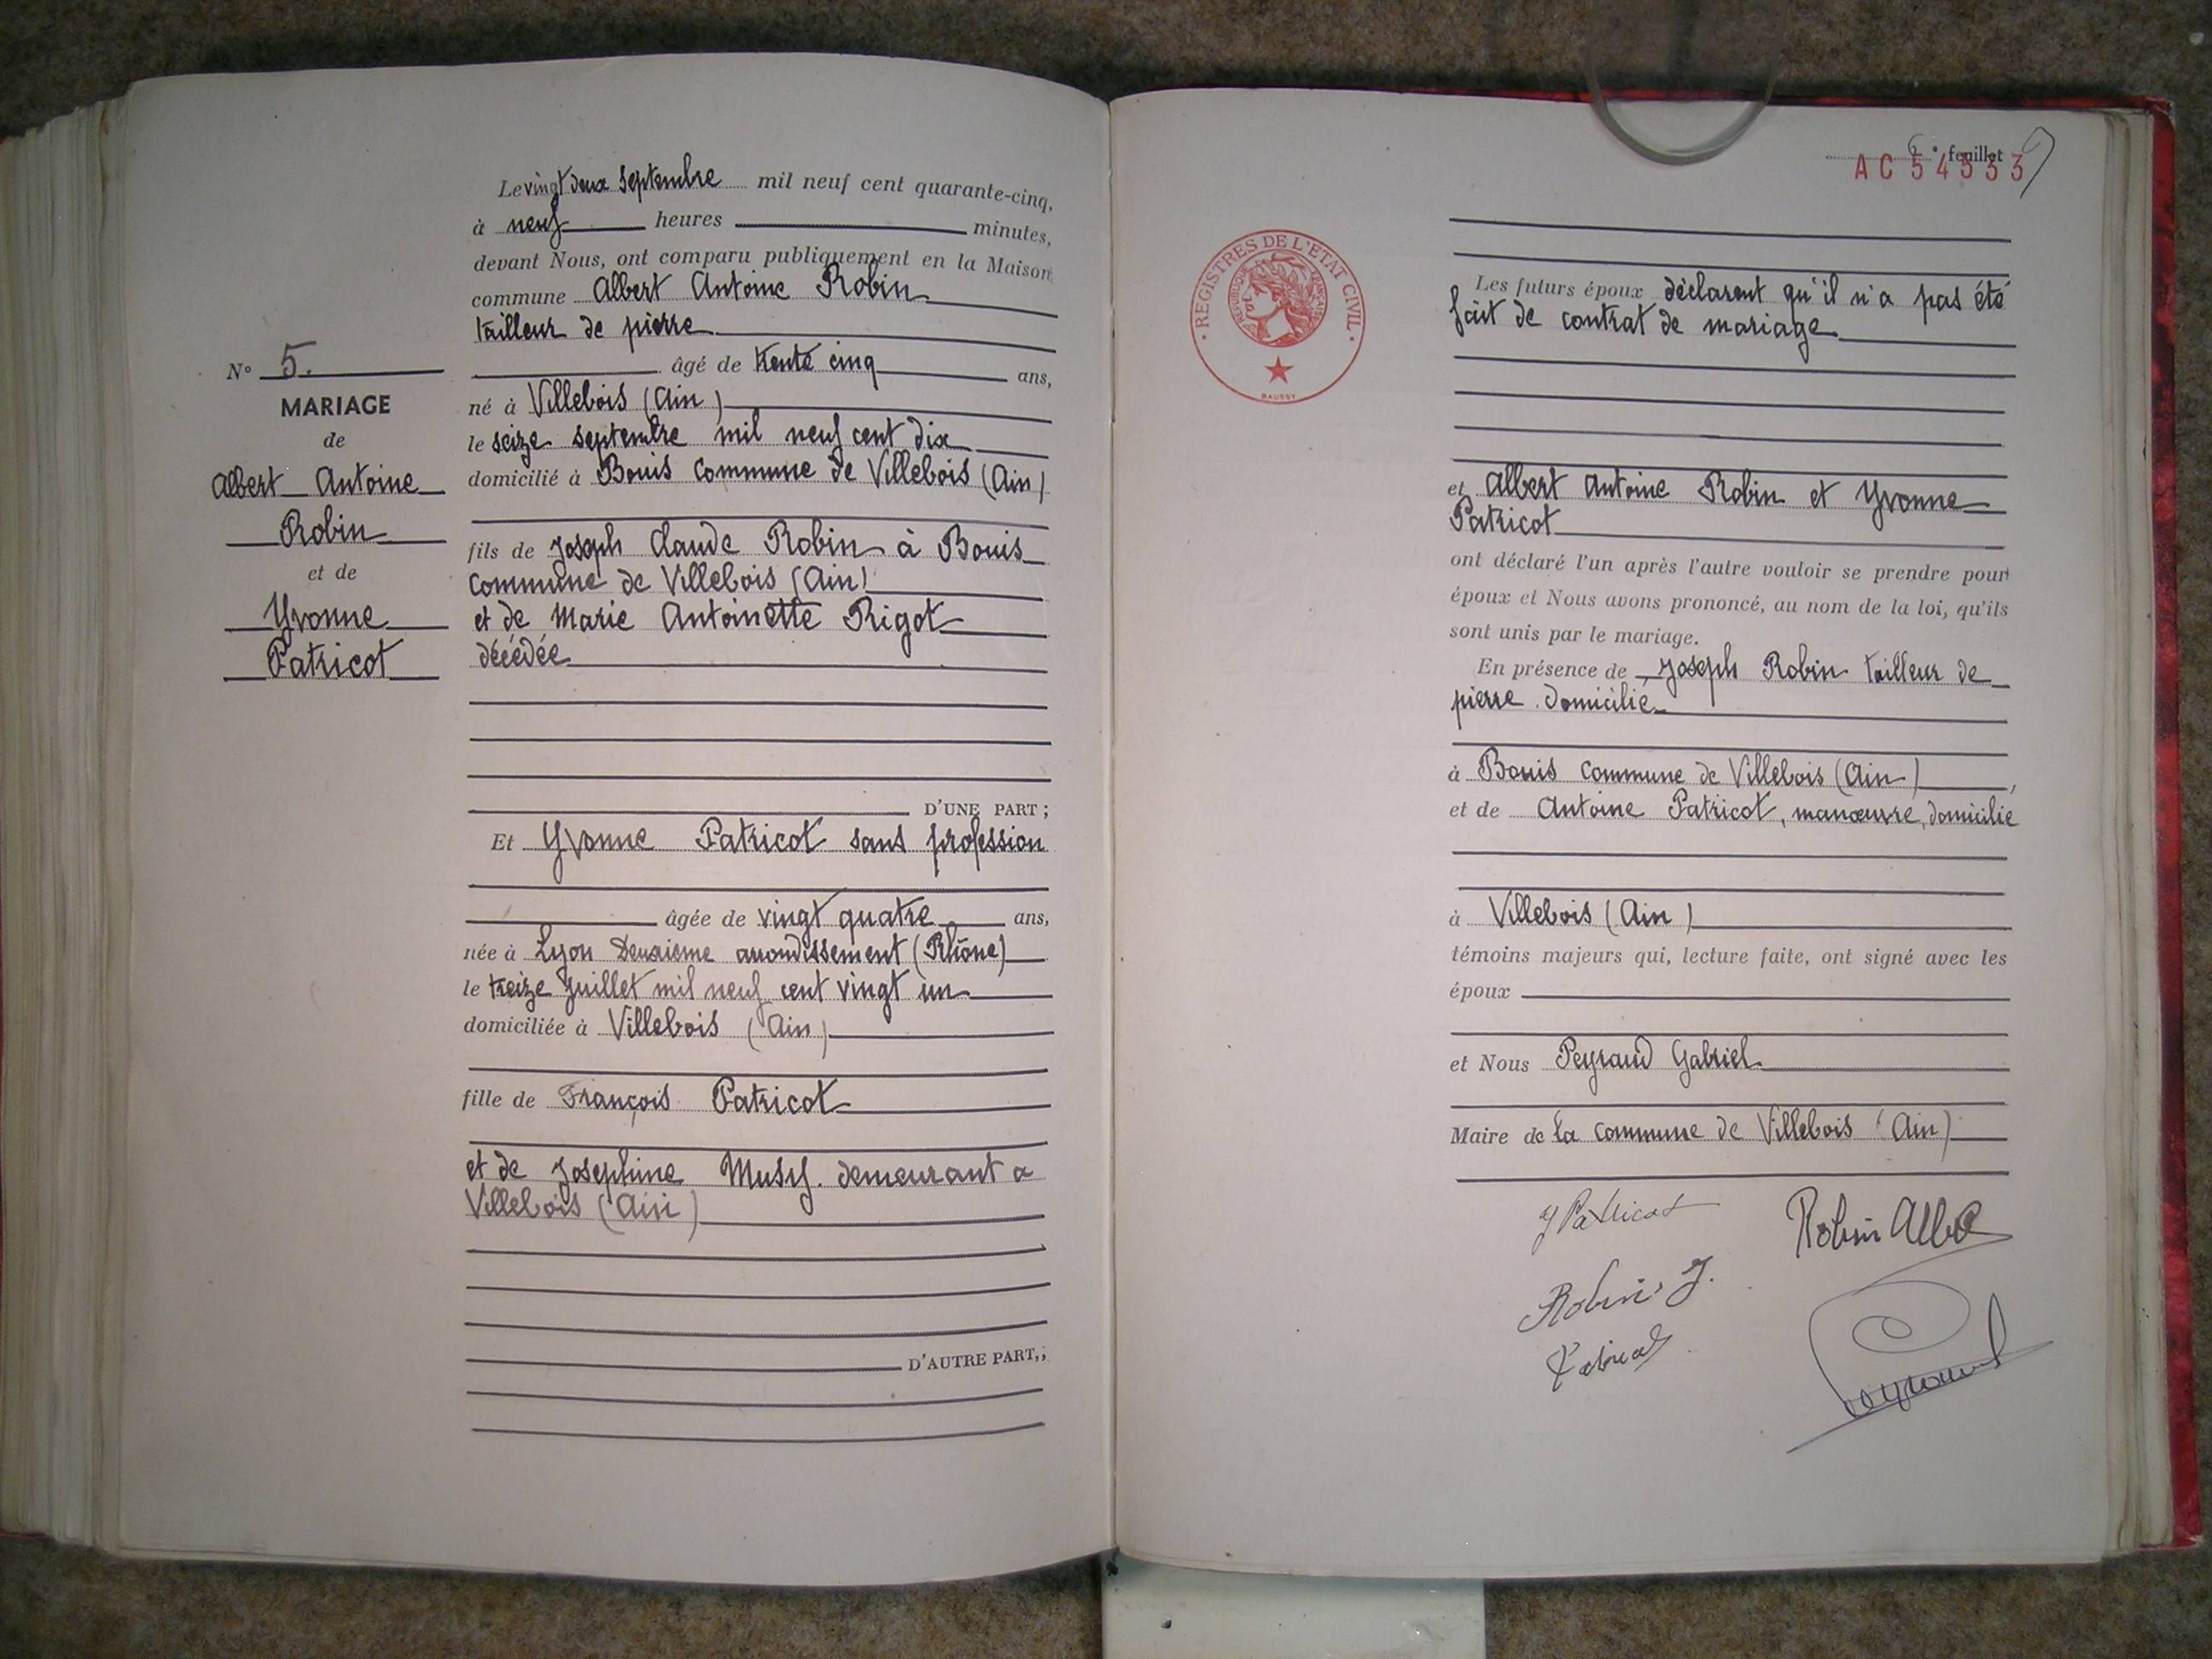 Le vingt deux Septembre mil neuf cent quarante-cinq,
à neuf heures minutes,
devant Nous, ont comparu publiquement en la Maison
commune Albert Antoine Robin
tailleur de pierre
âgé de trente cinq ans,
né à Villebois (Ain)
le seize septembre mil neuf cent dix
domicilié à Bouis commune de Villebois (Ain)
fils de Joseph Claude Robin à Bouis
commune de Villebois (Ain)
et de Marie Antoinette Rigot
décédée
D'UNE PART ;
Et Yvonne Patricot sans profession
âgée de vingt quatre ans,
née à Lyon Deuxième arrondissement (Rhône)
le treize Juillet mil neuf cent vingt un
domiciliée à Villebois (Ain)
fille de François Patricot
et de Josephine Musy. demeurant a
Villebois (Ain)
D'AUTRE PART,;
N° 5.
MARIAGE
de
Albert Antoine
Robin
et de
Yvonne
Patricot
feuillet
AC 54533
REGISTRES DE L'ÉTAT CIVIL
RÉPUBLIQUE FRANÇAISE
Les futurs époux déclarent qu'il n'a pas été
fait de contrat de mariage
et Albert Antoine Robin et Yvonne
Patricot
ont déclaré l'un après l'autre vouloir se prendre pour
époux et Nous avons prononcé, au nom de la loi, qu'ils
sont unis par le mariage.
En présence de Joseph Robin tailleur de
pierre. domicilié
à Bouis commune de Villebois (Ain),
et de Antoine Patricot, manœuvre, domicilié
à Villebois (Ain)
témoins majeurs qui, lecture faite, ont signé avec les
époux
et Nous Peyraud Gabriel
Maire de la commune de Villebois (Ain)
Y Patricot
Robin Albe
Robin J.
Peyraud